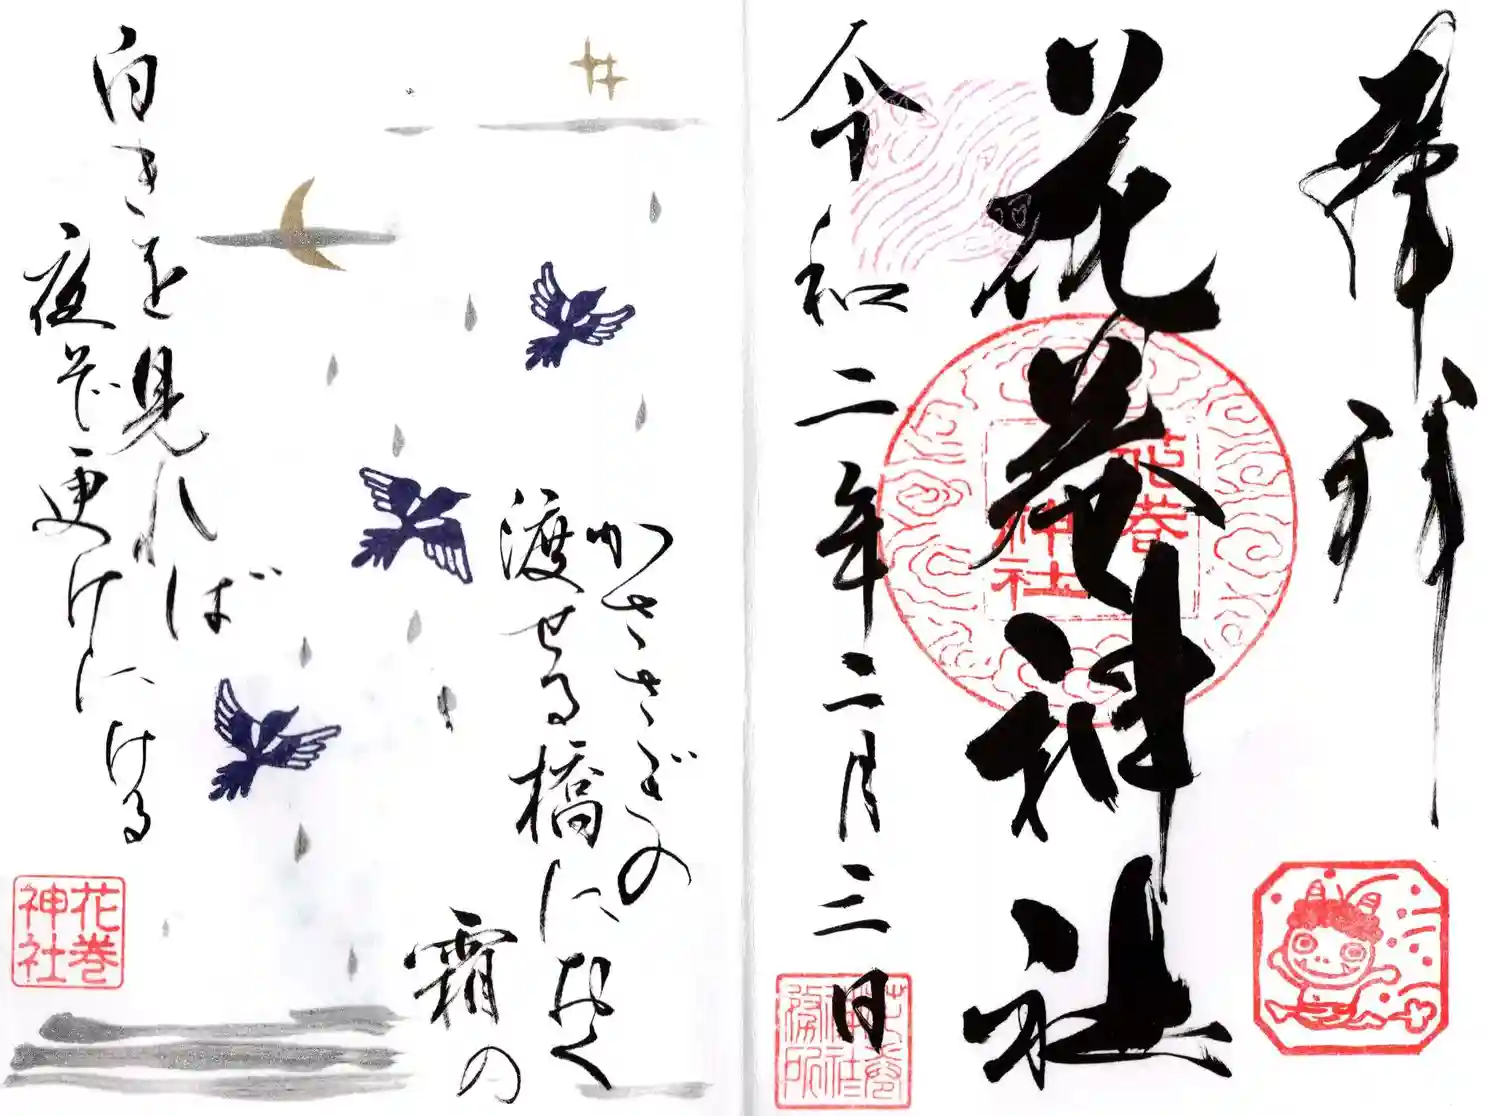 奉拝
花巻神社
花巻
神社
令和二年二月三日
花巻
神社
務所
かささぎの
渡せる橋におく
霜の
白きを見れば
夜ぞ更けにける
花巻
神社